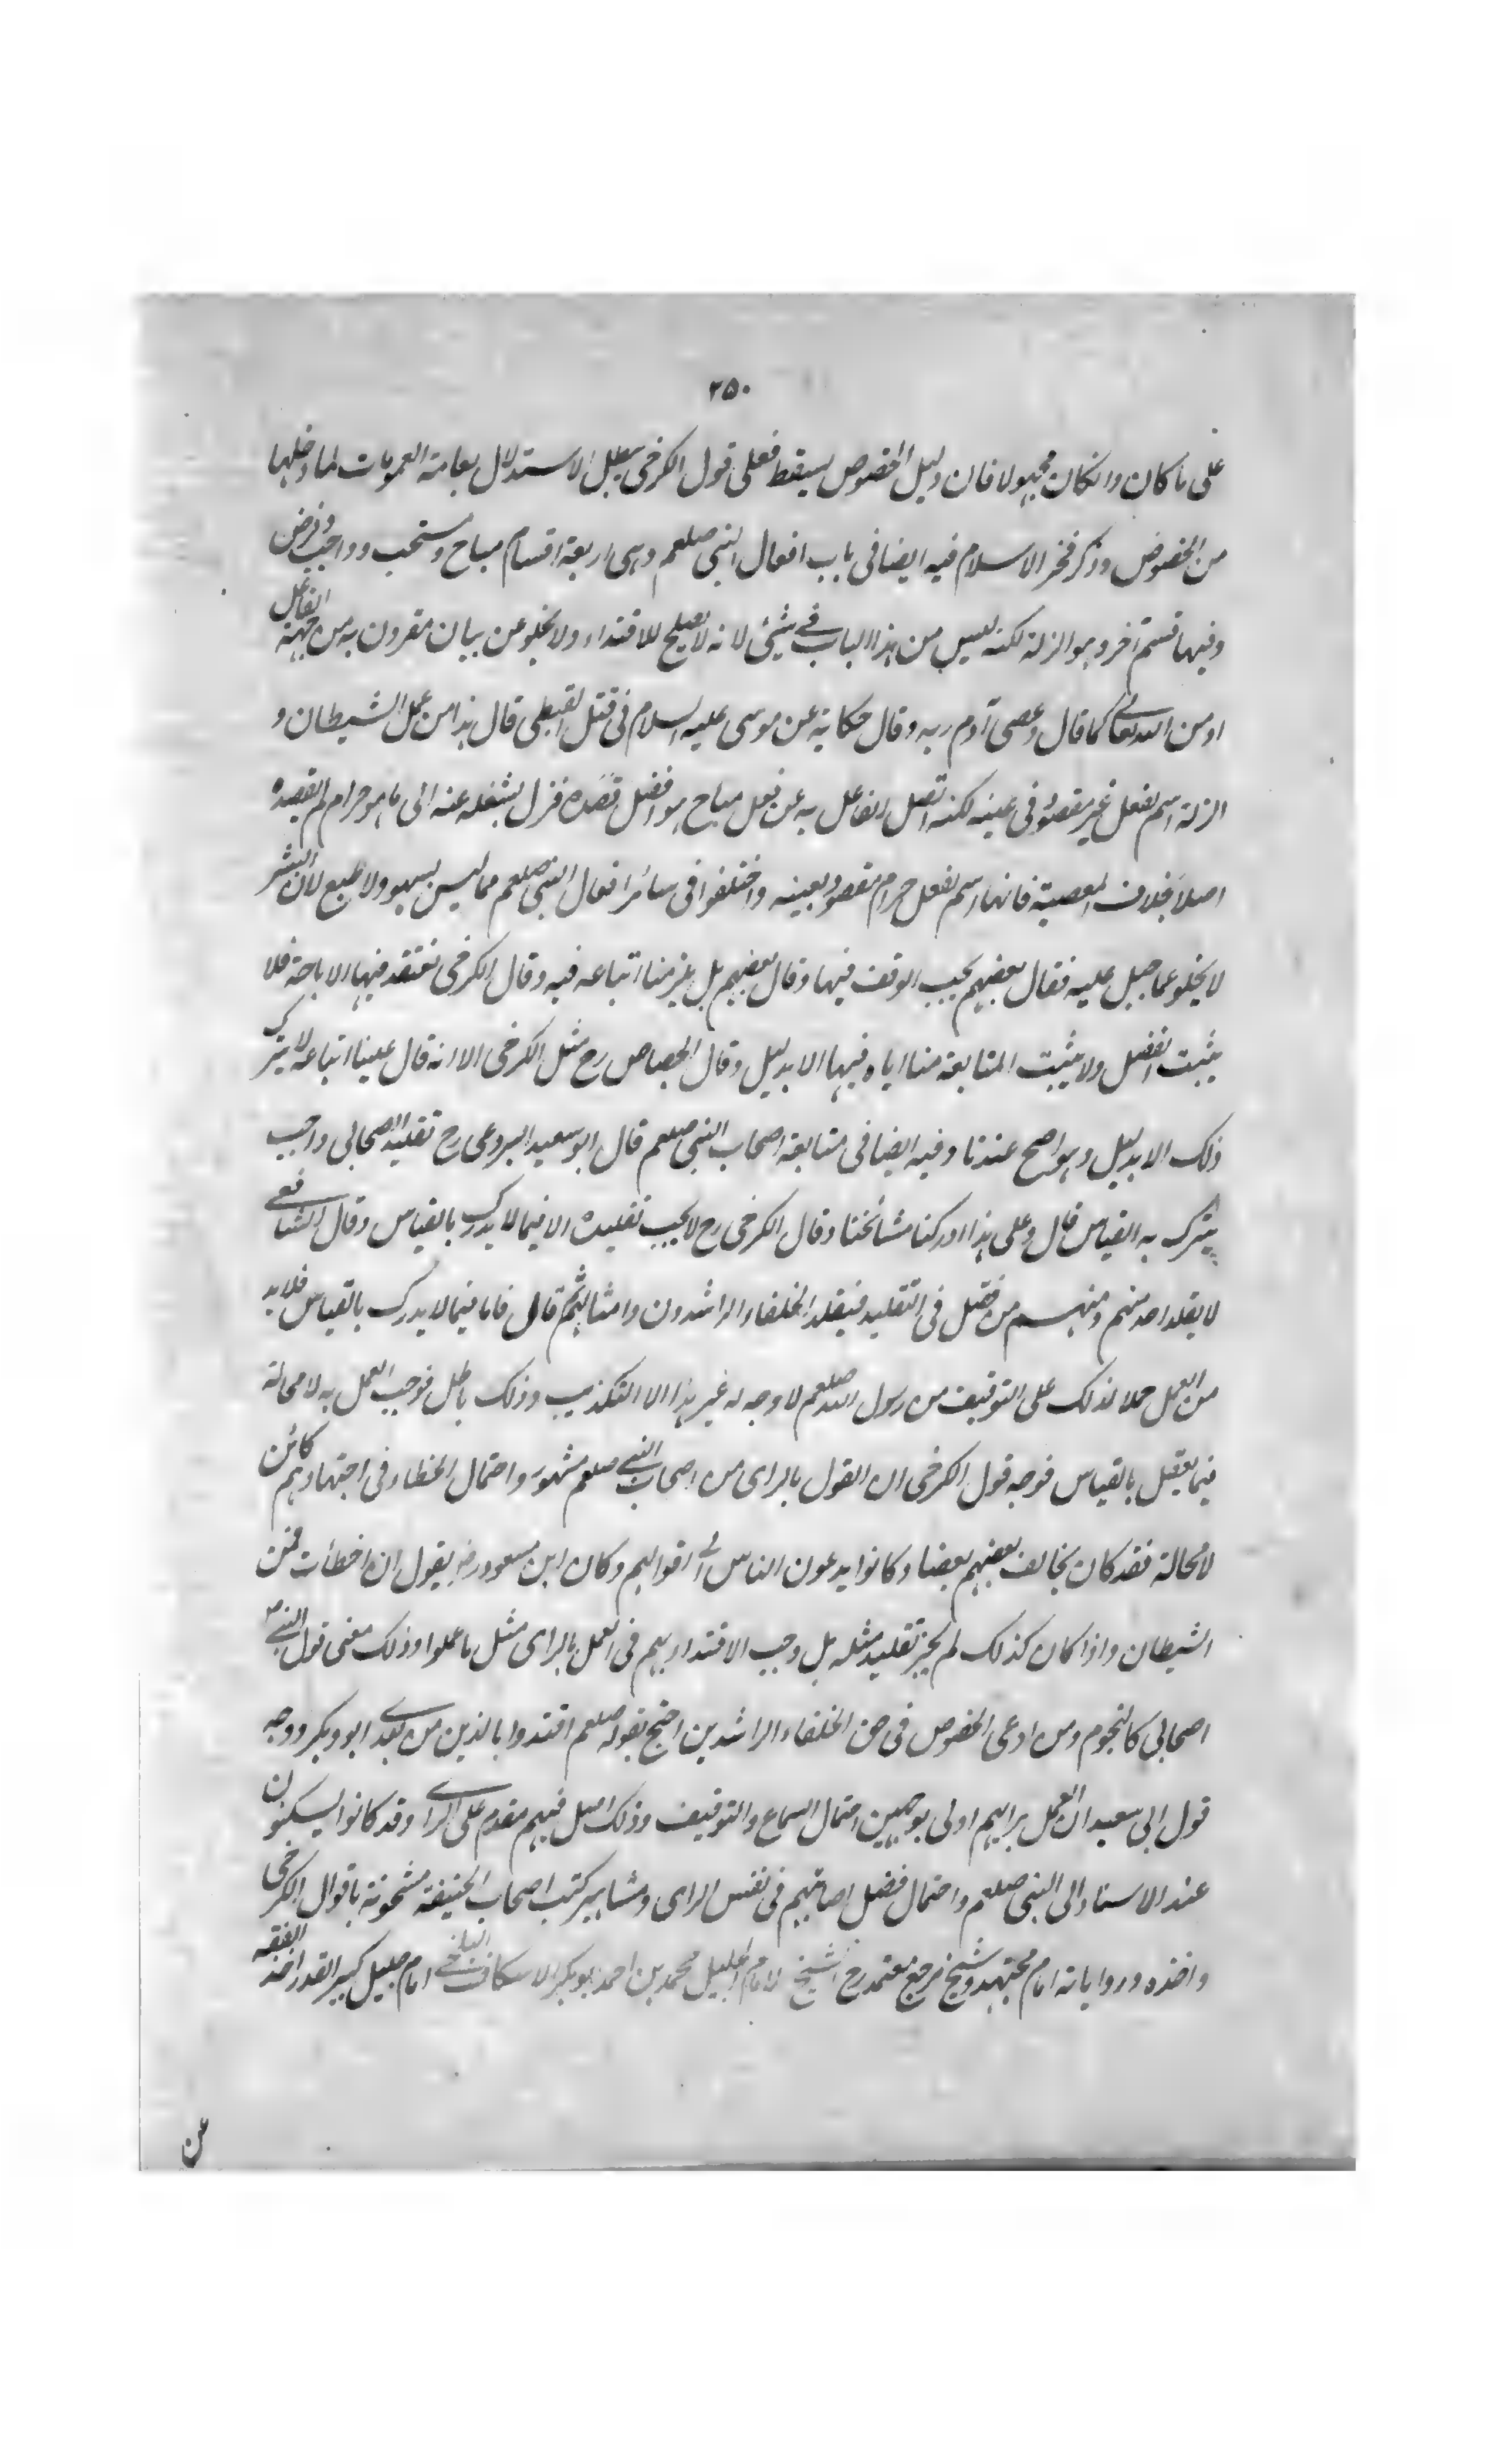 ٢٥٠
على ما كان وان كان مجهولا فان دليل الخصوص يسقط فعلى قول الكرخي يبطل الاستدلال بعامة العمومات لما دخلها
من الخصوص وذكر فخر الاسلام فيه ايضا في باب افعال النبي صلعم وهي اربعة اقسام مباح ومستحب وواجب وفرض
وفيها قسم آخر وهو الزلة لكنه ليس من هذا الباب في شيئ لانه لا يصلح للاقتداء ولا يخلو عن بيان مقرون به من جهة الفاعل
او من الله تعالى كما قال وعصى آدم ربه وقال حكاية عن موسى عليه السلام في قتل القبطي قال هذا من عمل الشيطان و
الزلة اسم لفعل غير مقصود في عينه لكنه اتصل الفاعل به عن فعل مباح هو افضل قصده فزل بشغله عنه الى ما هو حرام لم يقصده
اصلا بخلاف المعصية فانها اسم لفعل حرام مقصود بعينه واختلفوا في سائر افعال النبي صلعم مما ليس بسهو ولا طبع لان البشر
لا يخلو عما جبل عليه فقال بعضهم يجب الوقف فيها وقال بعضهم بل يلزمنا اتباعه فيه وقال الكرخي نعتقد فيها الاباحة فلا
يثبت الفضل ولا يثبت المتابعة منا اياه فيها الا بدليل وقال الجصاص رح مثل الكرخي الا انه قال علينا اتباعه لا يترك
ذلك الا بدليل وهو اصح عندنا وفيه ايضا في متابعة اصحاب النبي صلعم قال ابو سعيد البردعي رح تقليد الصحابي واجب
يترك به القياس قال وعلى هذا ادركنا مشائخنا وقال الكرخي رح لا يجب تقليده الا فيما لا يدرك بالقياس وقال الشافعي
لا يقلد احد منهم ومنهم من فصل في التقليد فيقلد الخلفاء الراشدون وامثالهم ثم قال فاما فيما لا يدرك بالقياس فلا بد
من العمل حملا لذلك على التوقيف من رسول الله صلعم لا وجه له غير هذا الا التكذيب وذلك باطل فوجب العمل به لا محالة
فيما يعقل بالقياس فوجه قول الكرخي ان القول بالراى من اصحاب النبي صلعم مشهور واحتمال الخطاء في اجتهادهم كائن
لا محالة فقد كان يخالف بعضهم بعضا وكانوا يدعون الناس الى اقوالهم وكان ابن مسعود رض يقول ان اخطأت فمن
الشيطان واذا كان كذلك لم يجز تقليد مثله بل وجب الاقتداء بهم في العمل بالراى مثل ما عملوا وذلك معنى قول النبي ص
اصحابي كالنجوم ومن ادعى الخصوص في حق الخلفاء الراشدين احتج بقوله صلعم اقتدوا بالذين من بعدي ابو وبكر ووجه
قول ابي سعيد ان العمل برايهم اولى بوجهين احتمال السماع والتوقيف وذلك اصل فيهم مقدم على الراى وقد كانوا يسكنون
عند الاسناد الى النبي صلعم واحتمال فضل اصابتهم في نفس الراى ومشاهير كتب اصحاب الحنيفة مشحونة باقوال الكرخي
واخذه ورواياته امام مجتهد وشيخ مرجع معتمد رح الشيخ الامام الجليل محمد بن احمد ابو بكر الاسكاف البلخي امام جليل كبير القدر اخذ الفقه
عن